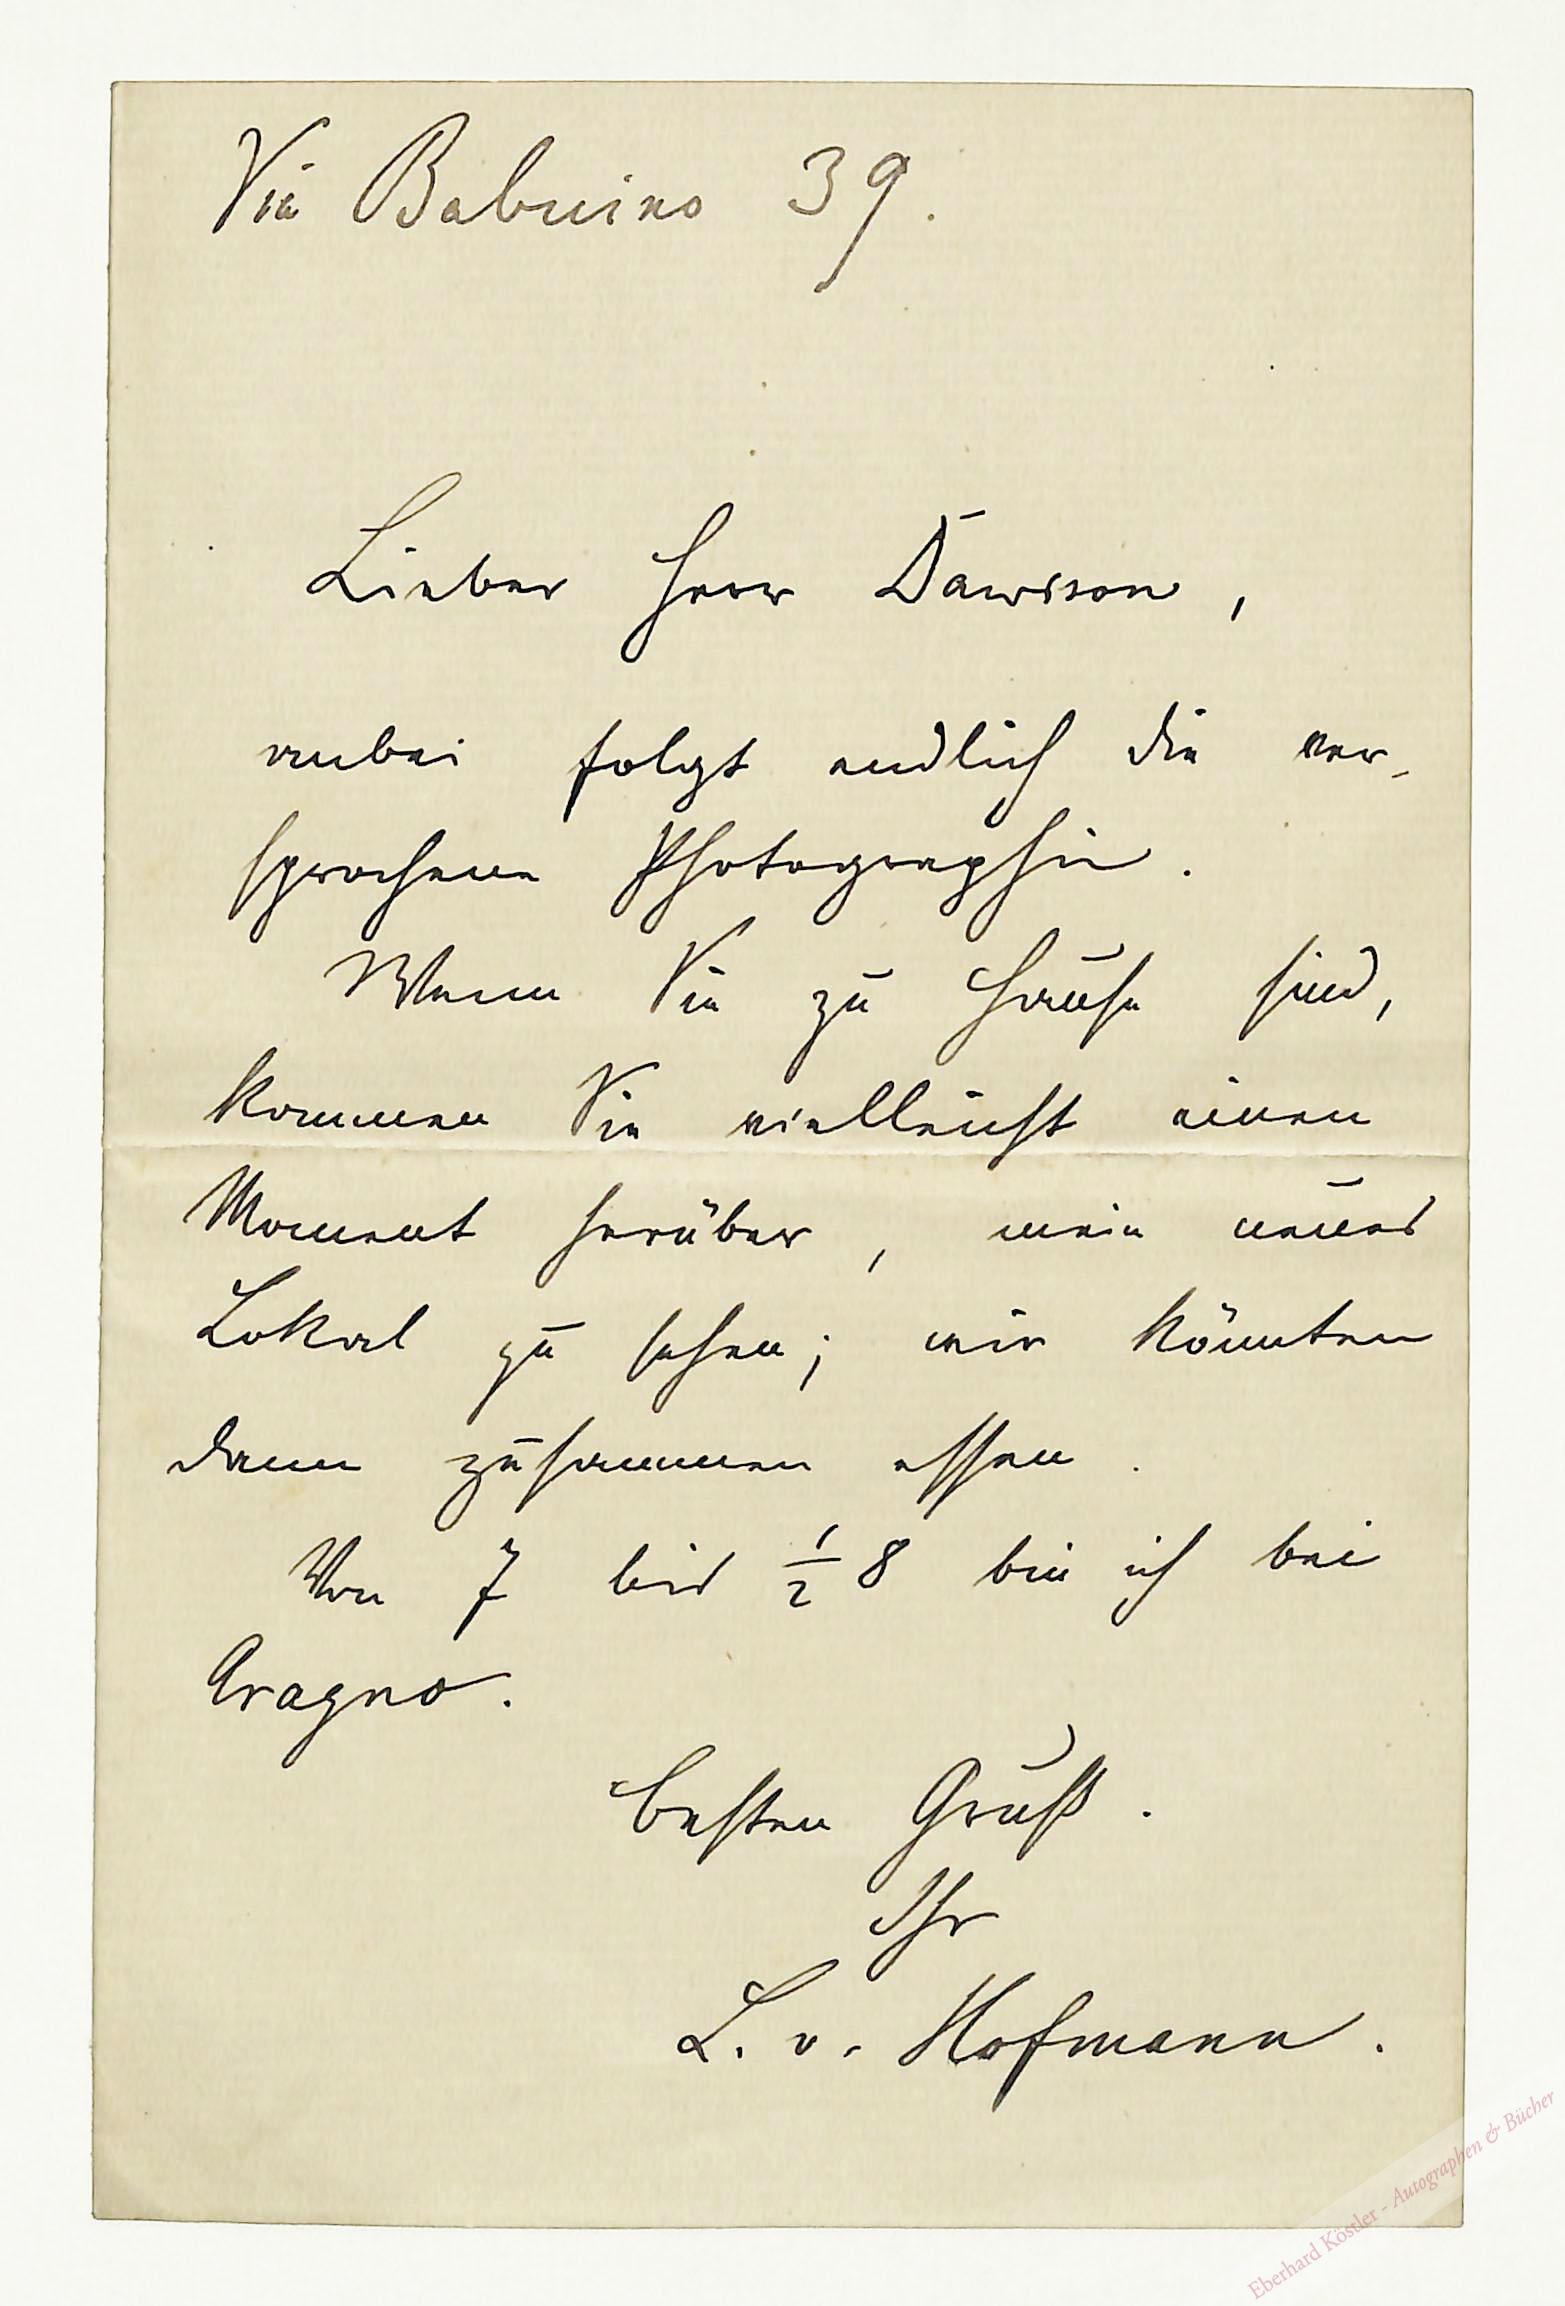 Via Babuino 39.
Lieber Herr Dawison,
anbei folgt endlich die ver-
sprochene Photographie.
Wenn Sie zu Hause sind,
kommen Sie vielleicht einen
Moment herüber, mein neues
Lokal zu sehen; wir könnten
dann zusammen essen.
Von 7 bis ½ 8 bin ich bei
Aragno.
Besten Gruß.
Ihr
L. v. Hofmann.
Eberhard Köstler - Autographen & Bücher